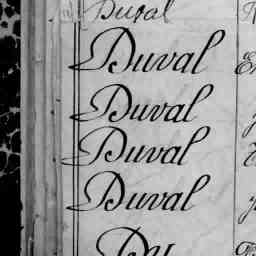 Duval
Duval
Duval
Duval
Duval
Du